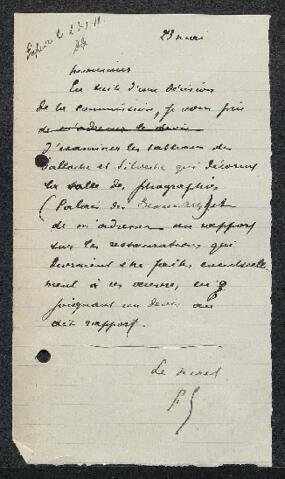 Expédié le 23.5.
23 mai
Monsieur
En suite d'une décision
de la commission, je vous prie
de m'adresser le devis
d'examiner les tableaux de
et qui décorent
la salle de
(Palais des Beaux-Arts) et
de m'adresser un rapport
sur les restaurations qui
devraient être faites éventuelle-
ment à ces œuvres, en y
joignant un devis au
dit rapport.
Le